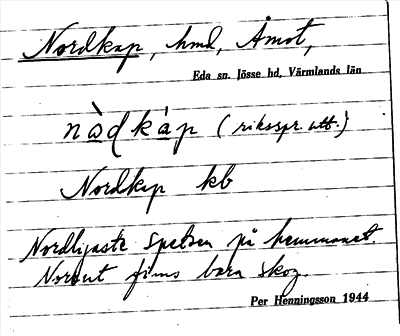 Nordkap, hmd, Åmot,
Eda sn. Jösse hd, Värmlands län
nå̀dkáp (riksspr. utt.)
Nordkap kb
Nordligaste spetsen på hemmanet.
Norrut finns bara skog.
Per Henningsson 1944